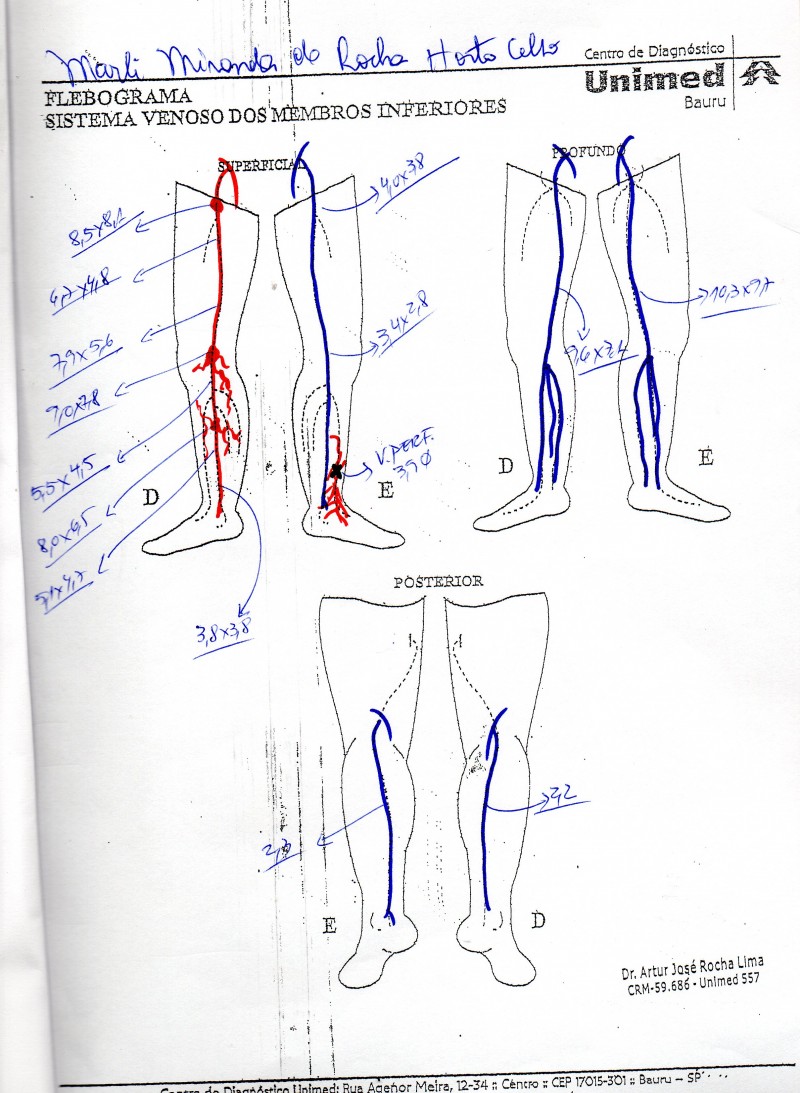 Marli Miranda da Rocha Horto Celso
Centro de Diagnóstico
Unimed
Bauru
FLEBOGRAMA
SISTEMA VENOSO DOS MEMBROS INFERIORES
SUPERFICIAL
PROFUNDO
8,5x8,1
4,0x3,8
4,7x4,8
10,3x9,7
7,9x5,6
3,4x2,8
9,6x7,4
9,0x7,8
5,5x4,5
V. PERF.
3,9 Ø
D
E
D
E
8,0x6,5
5,1x4,7
3,8x3,8
POSTERIOR
3,2
E
D
Dr. Artur José Rocha Lima
CRM-59.686 - Unimed 557
Centro de Diagnóstico Unimed: Rua Agenor Meira, 12-34 :: Centro :: CEP 17015-301 :: Bauru – SP